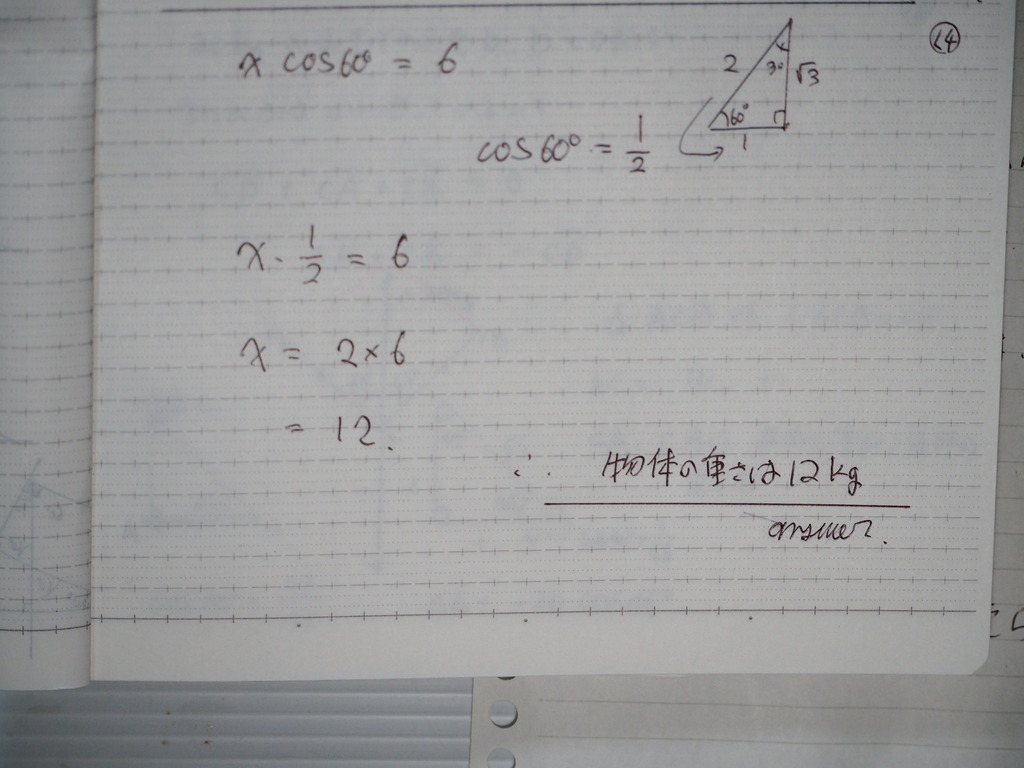 ⑭
x cos60° = 6
2
30
√3
60°
1
cos60° = 1/2
x・1/2 = 6
x = 2×6
= 12.
∴ 物体の重さは12kg
answer.